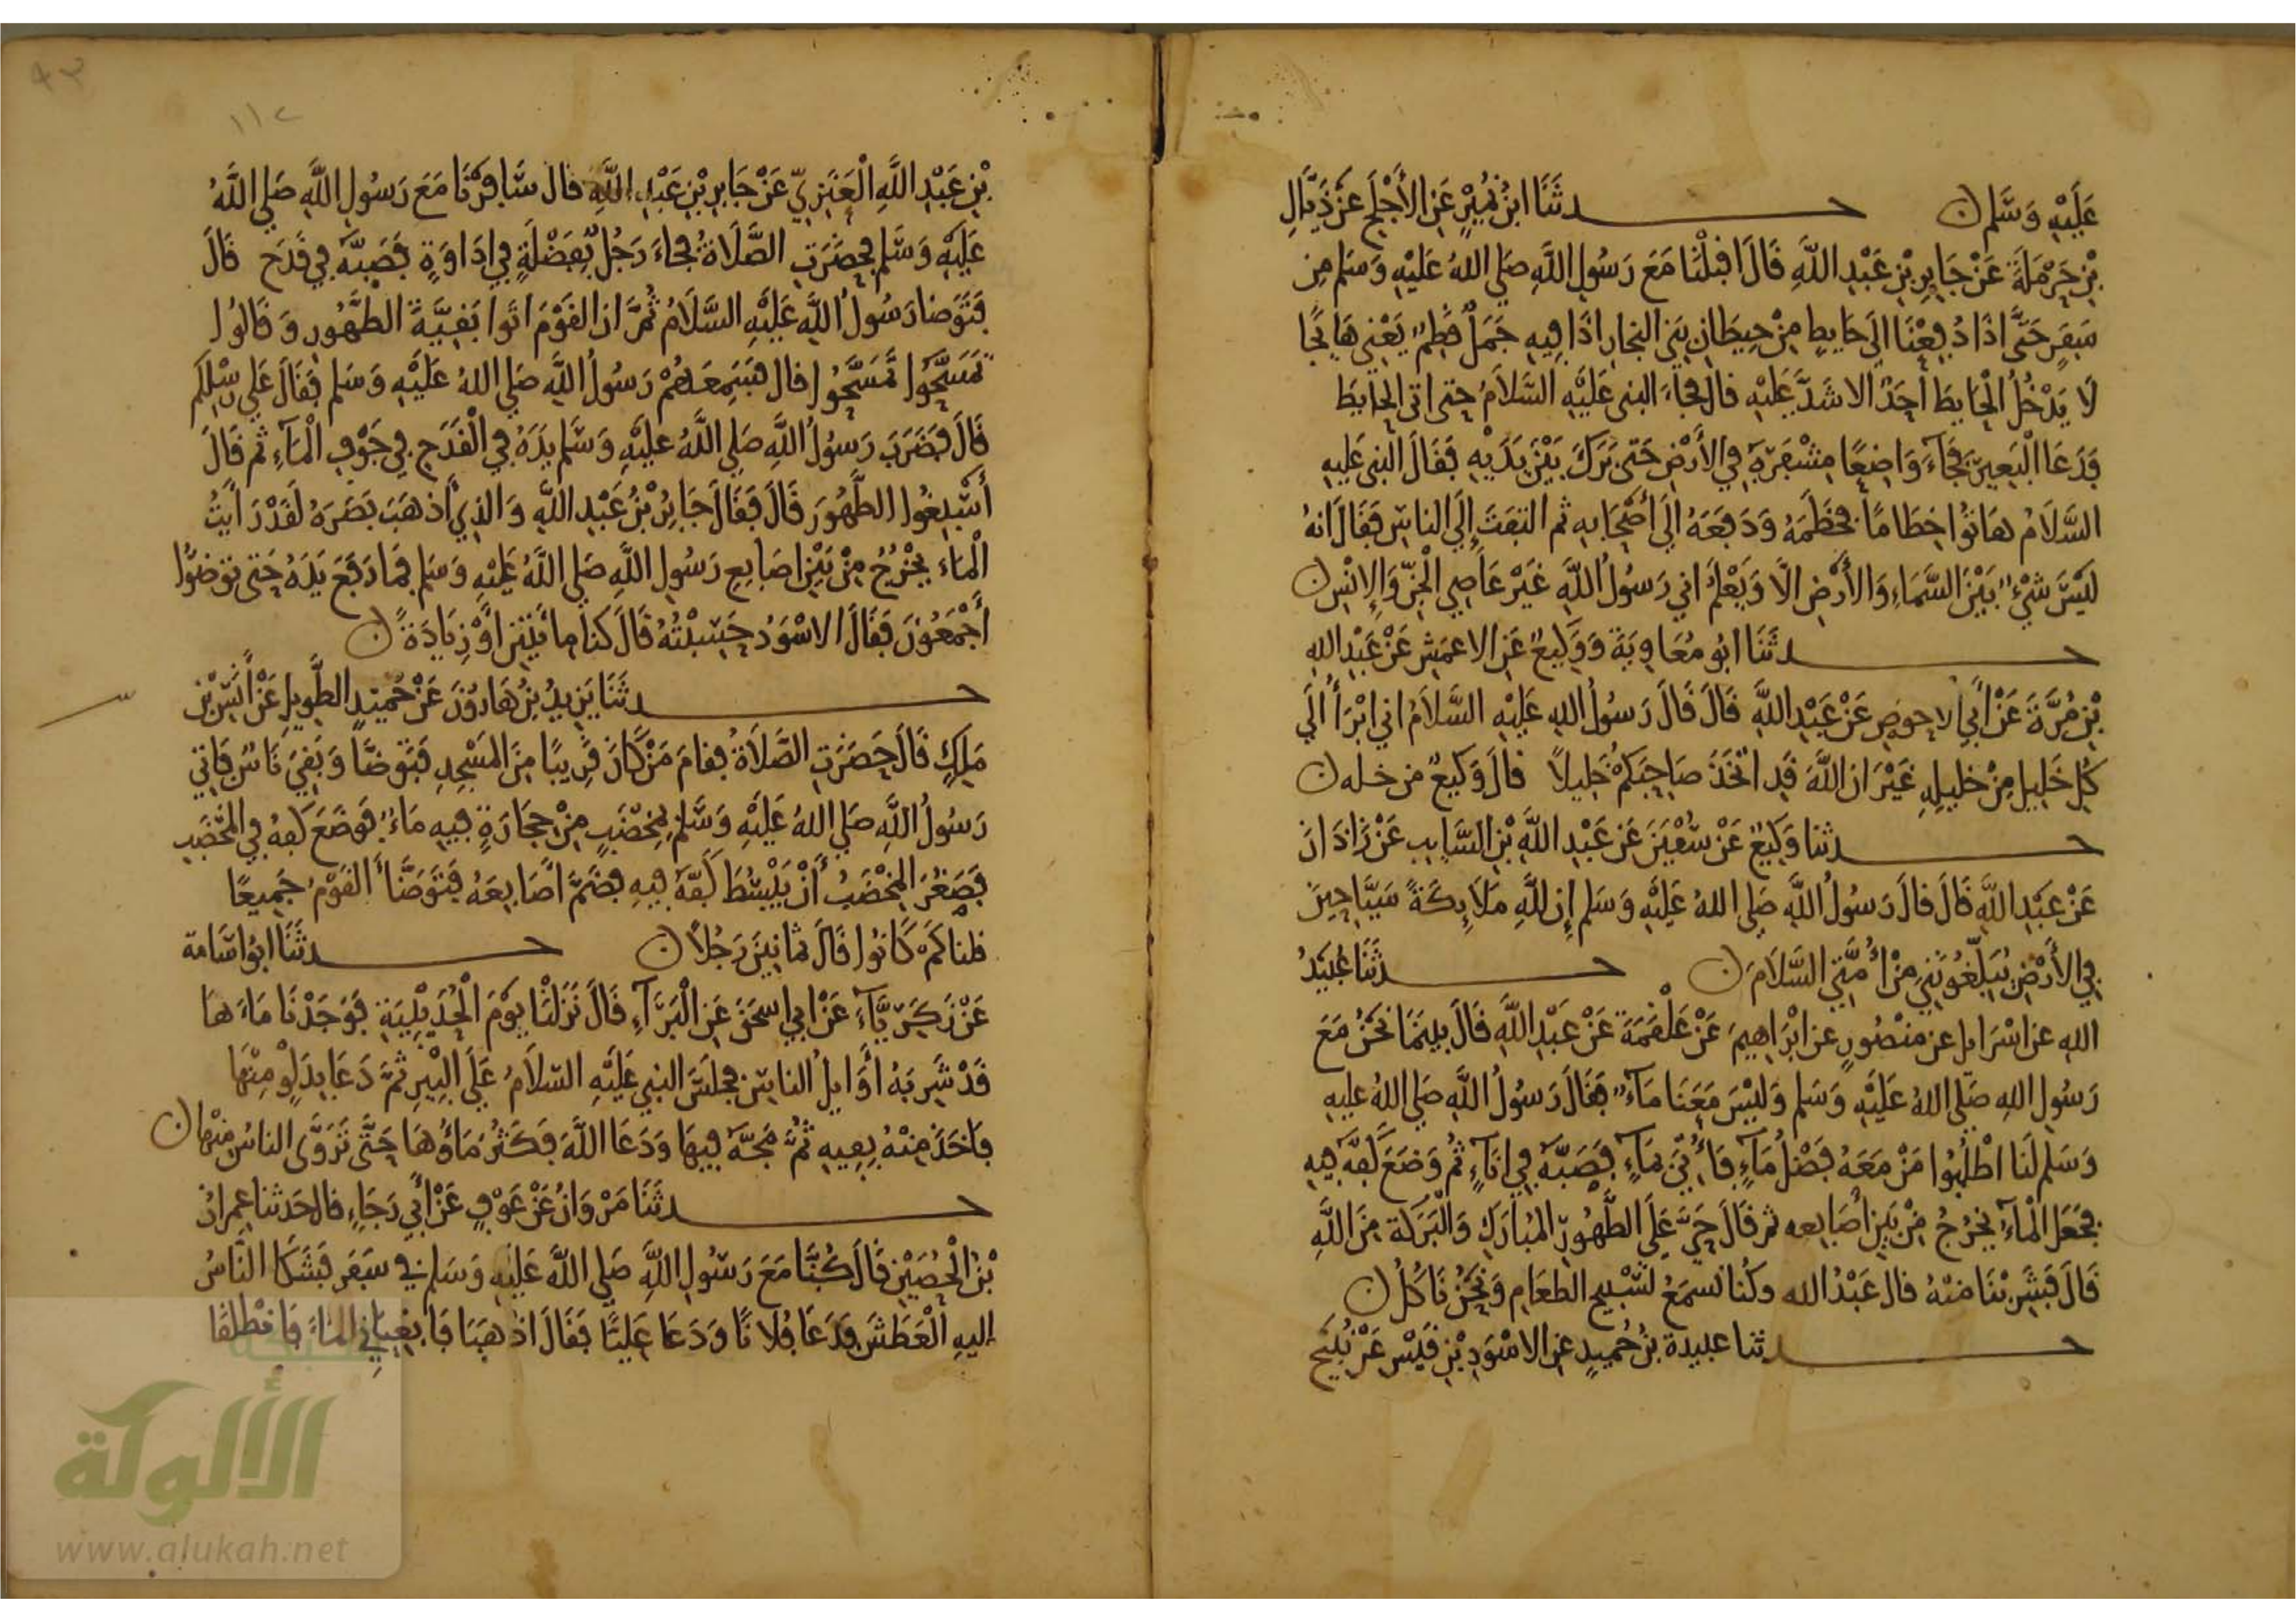 عَلَيْهِ وَسَلَّم ن حـــدثَنَا ابْنُ نُمَيْرٍ عَنِ الأَجْلَحِ عَنْ ذَيَّالِ
بْنِ حَرْمَلَةَ عَنْ جَابِرِ بْنِ عَبْدِ اللَّهِ قَالَ اقبَلْنَا مَعَ رَسُولِ اللَّهِ صَلى اللهُ عَلَيْهِ وَسَلم مِن
سَفَرٍ حَتَّى اذَا دُفِعْنَا الَى حَايطٍ مِنْ حِيطَانِ بَنى النجارِ اذَا فِيهِ جَمَلٌ قَطِمٌ يَعْنِى هَايجًا
لَا يَدْخُلُ الْحَايطَ أَحَدٌ الا شَدَّ عَلَيْهِ قال فجاءَ النبى عَلَيْهِ السَّلَامُ حتى اتى الحايطَ
فَدَعَا الْبَعِيرَ فَجَآءَ وَاضِعًا مِشْفَرَهُ في الأَرْضِ حَتى بَرَكَ بَيْنَ يَدَيْهِ فَقَالَ النبى عَلَيهِ
السَّلَامُ هَاتُوا خِطَامًا فخَطَمَهُ وَدَفَعَهُ الَى أَصْحَابِهِ ثم التفَتَ إِلَى الناسِ فَقَالَ انهُ
لَيْسَ شىْءٌ بَيْنَ السَّمَاءِ وَالأَرْضِ الَّا وَيَعْلَمُ انى رَسُولُ اللَّهِ غَيْرَ عَاصِى الْجِنِّ وَالإِنْسِ ن
حـــدثَنَا ابُو مُعَاوِيَةَ وَوَكِيعٌ عَنِ الاعمَشِ عَنْ عَبْدِ الله
بْنِ مُرَّةَ عَنْ أَبِى الاحوصِ عَنْ عَبْدِ اللَّهِ قَالَ قَالَ رَسُولُ اللهِ عَلَيْهِ السَّلَامُ انى ابْرَأُ الَى
كُلِ خَلِيلٍ مِنْ خلِيلِهِ غَيْرَ ان اللَّهَ قَدِ اتَّخَذَ صَاحِبَكُمْ خَلِيلاً قالَ وَكيعٌ من خله ن
حـــدثنا وَكِيعٌ عَنْ سُفْيَنَ عَن عَبْدِ اللَّهِ بْنِ السَّايبِ عَنْ زَاذَانَ
عَنْ عَبْدِ اللَّهِ قَالَ قالَ رَسُولُ اللَّهِ صَلى اللهُ عَلَيْهِ وَسَلم إِن لِلَّهِ مَلَايِكَةً سَيَّاحِينَ
فى الأَرْضِ يُبَلِّغُونَنِى مِنْ أُمَّتِى السَّلَامَ ن حـــدثَنَا عُبَيْدُ
الله عن اسْرَايل عن منْصُورٍ عن ابْرَاهِيمَ عَنْ عَلْقَمَةَ عَنْ عَبْدِ اللَّهِ قَالَ بينَمَا نَحْنُ مَعَ
رَسُولِ اللهِ صَلى اللهُ عَلَيْهِ وَسَلم وَليْسَ مَعَنَا مَآءٌ فقَالَ رَسُولُ اللَّهِ صَلى اللهُ عليهِ
وَسَلم لَنَا اطْلُبُوا مَنْ مَعَهُ فَضْلُ مَآءٍ فَأُتِىَ بمَآءٍ فَصَبَّهُ فِى انَآءٍ ثُم وَضَعَ كَفَّهُ فِيهِ
فجَعَلَ الْمَآءُ يَخْرُجُ مِنْ بَينِ أَصَابعه ثم قَالَ حَىَّ عَلَى الطَّهُورِ المُبَارَكِ وَالْبَرَكَة مِنَ اللَّهِ
قَالَ فَشَرِبْنَا منْهُ قال عَبْدُ الله وكُنا نَسمَعُ تَسْبِيح الطعَام وَنَحْنُ نَاكُلُ ن
حـــدثنا عبيدة بنُ حُميدٍ عن الاسْوَدِ بْنِ قَيْسٍ عَنْ نُبَيْحِ
١١٢
٩٣
بْنِ عَبْدِ اللَّهِ الْعَنَزِىِّ عَنْ جَابِرِ بْنِ عَبْدِ اللَّهِ قال سَافَرْنَا مَعَ رَسُولِ اللَّهِ صَلى اللَّهُ
عَلَيْهِ وَسَلم فحضَرَتِ الصَّلَاةُ فجَاءَ رَجُلٌ بِفَضْلَةٍ فِى ادَاوَةٍ فَصَبَّهُ فِى قَدَحٍ قَالَ
فَتَوَضا رَسُولُ اللَّهِ عَلَيْهِ السَّلَامُ ثُمَّ ان القَوْمَ اتَوا بَقِيَّةَ الطَّهُورِ وَقَالُوا
تمَسَّحُوا تَمَسَّحُوا قال فسَمِعَهُمْ رَسُولُ اللَّهِ صَلى اللهُ عَلَيْهِ وَسَلم فَقَالَ عَلى رِسْلِكُم
قَالَ فَضَرَبَ رَسُولُ اللَّهِ صَلى اللَّهُ عَلَيْهِ وَسَلم يَدَهُ فِى الْقَدَحِ فى جَوْفِ الْمَآءِ ثم قَالَ
أَسْبِغُوا الطَّهُورَ قَالَ فَقَالَ جَابِرُ بْنُ عَبْدِ اللَّهِ وَالذِى أَذهَبَ بَصَرَهُ لَقَدْ رَأَيْتُ
الْمَاءَ يَخْرُجُ مِنْ بَيْنِ اصَابِعِ رَسُولِ اللَّهِ صَلى اللَّهُ عَلَيْهِ وَسَلم فمَا رَفَعَ يَدَهُ حَتى توَضؤُا
أَجْمَعُونَ فَقَالَ الاسْوَدُ حَسِبْتُهُ قَالَ كُنا مِائَتَيْنِ اوْ زِيَادَةً ن
حـــدثَنَا يَزِيدُ بْنُ هَارُونَ عَنْ حُمَيْدٍ الطَّوِيلِ عَنْ أَنَسِ بْنِ
مَلِكٍ قَالَ حَضَرَتِ الصَّلَاةُ فقامَ مَنْ كَانَ قَرِيبًا مِنَ المَسْجِدِ فَتَوَضَّا وَبَقِىَ نَاسٌ فَاتِى
رَسُولُ اللَّهِ صَلى اللهُ عَلَيْهِ وَسَلم بِمِخْضَبٍ مِنْ حِجَارَةٍ فِيهِ مَاءٌ فَوَضَعَ كَفهُ فِى المِخْضَبِ
فَصَغُرَ المِخْضَبُ أَنْ يَبْسُطَ كَفَّهُ فِيهِ فضَمَّ أَصَابِعَهُ فَتَوَضَّأَ القَوْمُ جَمِيعًا
قلنا كَمْ كَانُوا قَالَ ثمانِينَ رَجُلاً ن حـــدثَنَا ابُو اسَامة
عَنْ زَكَرِيَّآءَ عَنْ ابِى اسحَقَ عَنِ الْبَرَآءِ قَالَ نَزَلْنَا يَوْمَ الْحُدَيْبِيَةِ فَوَجَدْنَا مَاءَهَا
قَدْ شَرِبَهُ أَوَايِلُ الناسِ فجلَسَ النبى عَلَيْهِ السّلاَمُ عَلَى الْبِيرِ ثمَّ دَعَا بِدَلْوٍ مِنْهَا
فَاخَذَ مِنْهُ بِفِيهِ ثُمَّ مَجَّهُ فِيهَا وَدَعَا اللَّهَ فَكَثُرَ مَاؤُهَا حَتَّى تَرَوَّى الناسُ مِنْهَا ن
حـــدثَنَا مَرْوَانُ عَنْ عَوْفٍ عَنْ أَبِى رَجَاءٍ قال حَدثنا عِمرانُ
بْنُ الْحُصَيْنِ قَالَ كُنَّا مَعَ رَسُولِ اللَّهِ صَلى اللَّهُ عَلَيْهِ وَسَلم فى سَفَرٍ فَشَكَا النَّاسُ
إليهِ الْعَطَشَ فَدَعَا فُلَانًا وَدَعَا عَلِيًّا فَقَالَ اذهَبَا فَابْغِيَانِى المَاءَ فَانْطَلَقَا
شبكة
الألوكة
www.alukah.net